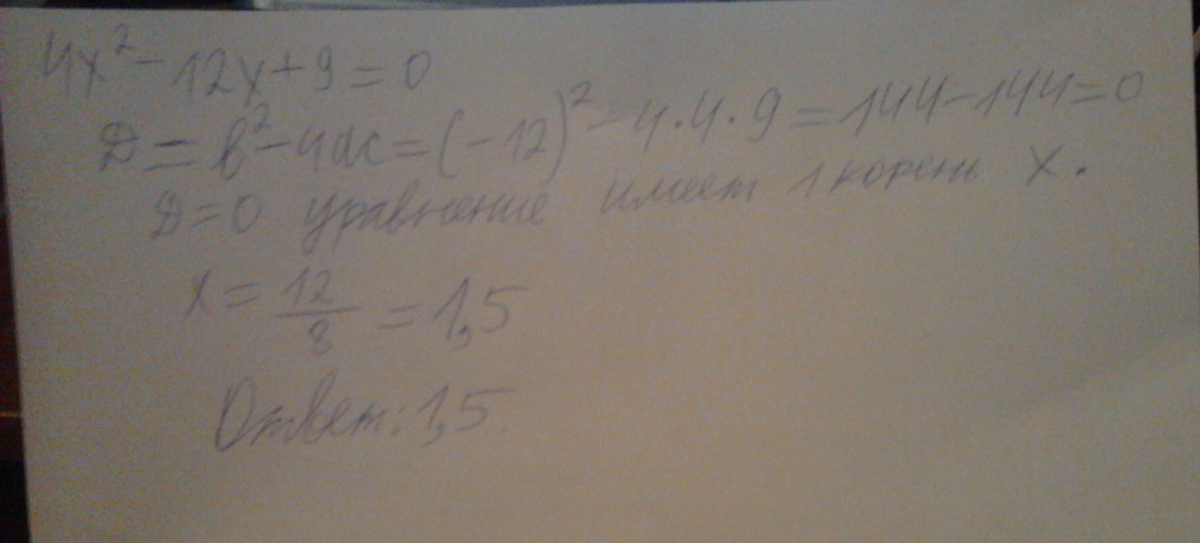 4x² - 12x + 9 = 0
D = b² - 4ac = (-12)² - 4·4·9 = 144 - 144 = 0
D = 0 уравнение имеет 1 корень x.
x = 12/8 = 1,5
Ответ: 1,5.